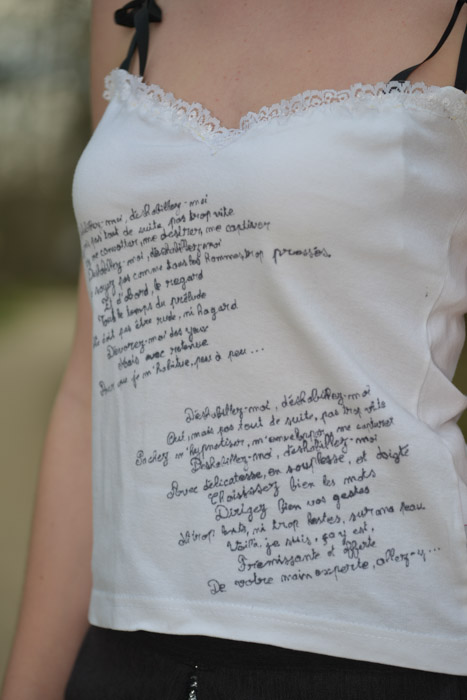 déshabillez-moi
pas tout de suite, pas trop vite
me convoiter, me désirer, me captiver
Déshabillez-moi, déshabillez-moi
soyez pas comme tous les hommes, trop pressés.
Et d'abord, le regard
Tout le temps du prélude
doit pas être rude, ni hagard
Dévorez-moi des yeux
Mais avec retenue
Pour que je m'habitue, peu à peu...
Déshabillez-moi, déshabillez-moi
Oui, mais pas tout de suite, pas trop vite
Sachez m'hypnotiser, m'envelopper, me capturer
Déshabillez-moi, déshabillez-moi
Avec délicatesse, en souplesse, et doigté
Choisissez bien les mots
Dirigez bien vos gestes
Ni trop lents, ni trop lestes, sur ma peau
Voilà, je suis, ça y est,
Frémissante et offerte
De votre main experte, allez-y...